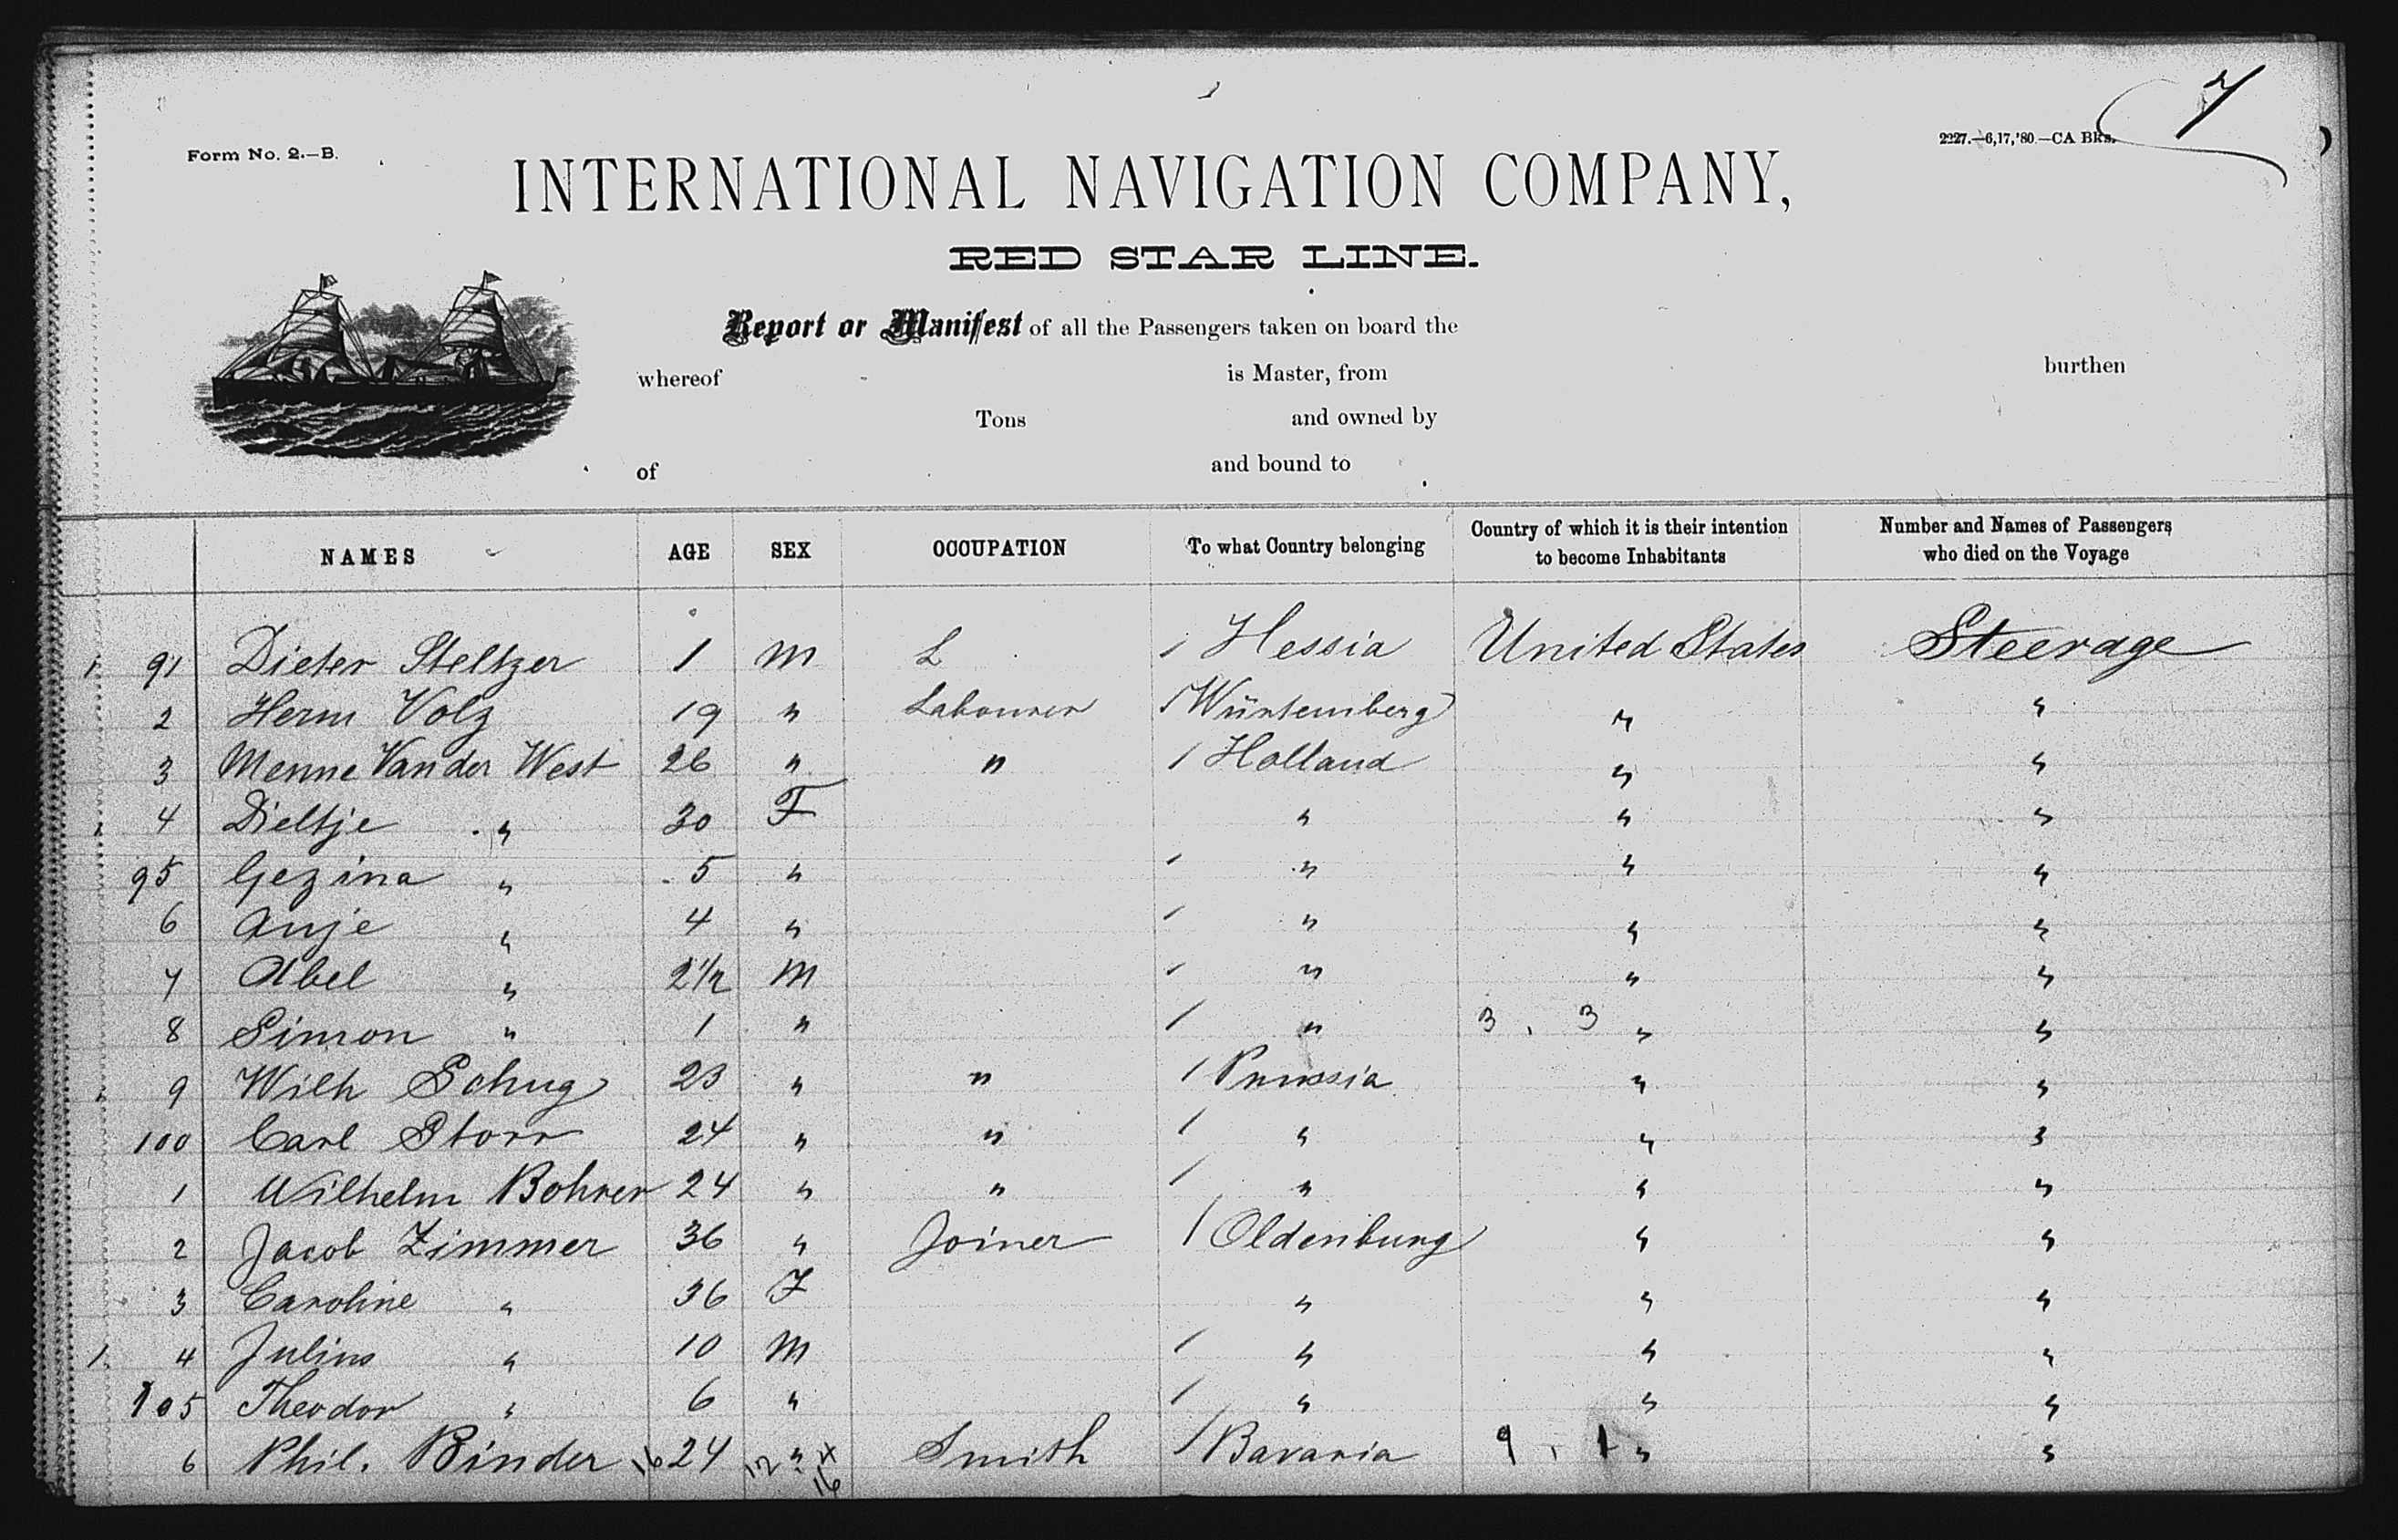 7
Form No. 2.—B.
2227.—6,17,'80.—CA Bks.
INTERNATIONAL NAVIGATION COMPANY,
RED STAR LINE.
Report or Manifest of all the Passengers taken on board the
whereof is Master, from burthen
Tons and owned by
of and bound to
NAMES AGE SEX OCCUPATION To what Country belonging Country of which it is their intention to become Inhabitants Number and Names of Passengers who died on the Voyage
91 Dieter Steltzer 1 M L / Hessia United States Steerage
2 Herm Volz 19 " Labourer / Würtemberg " "
3 Menne Vander West 26 " " / Holland " "
4 Dieltje " 30 F " " "
95 Gezina " 5 " / " " "
6 Anje " 4 " / " " "
7 Abel " 2 1/2 M / " " "
8 Simon " 1 " / " 3 . 3 " "
9 Wilh Schug 23 " " / Prussia " "
100 Carl Storr 24 " " / " " "
1 Wilhelm Bohrer 24 " " / " " "
2 Jacob Zimmer 36 " Joiner / Oldenburg " "
3 Caroline " 36 F " " "
4 Julius " 10 M / " " "
105 Theodor " 6 " / " " "
6 Phil. Binder 16 24 12 " 4 Smith / Bavaria 9 , 1 " "
16